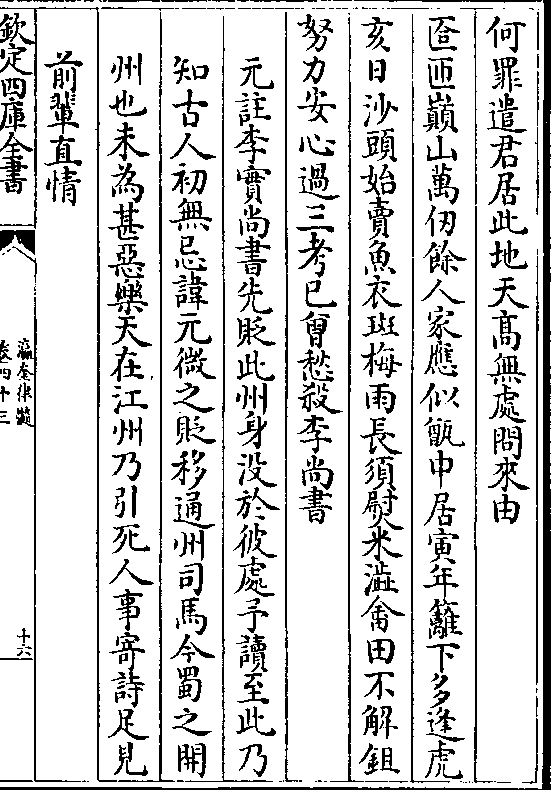 何罪遣君居此地天髙無處問來由
匼匝巔山萬仞餘人家應似甑中居寅年籬下多逢虎
亥日沙頭始賣魚衣斑梅雨長須熨米澁畬田不解鉏
努力安心過三考已曾愁殺李尚書
元註李實尚書先貶此州身没於彼處予讀至此乃
知古人初無忌諱元微之貶移通州司馬今蜀之開
州也未為甚惡樂天在江州乃引死人事寄詩足見
前輩直情
欽定四庫全書
瀛奎律髓
卷四十三
十六